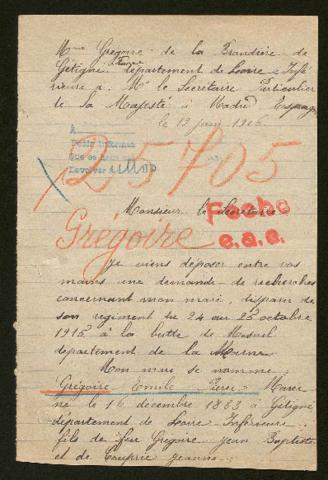 Mme Gregoire de la Brandière de
Gétigné France département de Loire Infé
rieure a Mr le Secretaire Particulier
de Sa Majesté à Madrid Espagne
le 19 juin 1916
A
25705
Devolver a
Monsieur le Secretaire
Fecho
Gregoire
e.a.a.
Je viens déposer entre vos
mains une demande de recherches
concernant mon mari, disparu de
son regiment du 24 au 25 octobre
1915 à la butte de Mesnil
département de la Marne.
Mon mari se nomme
Grégoire Emile Pierre Marie
né le 16 décembre 1883 à Gétigné
département de Loire Inférieure
fils de feu Grégoire Jean Baptiste
et de Jeanne